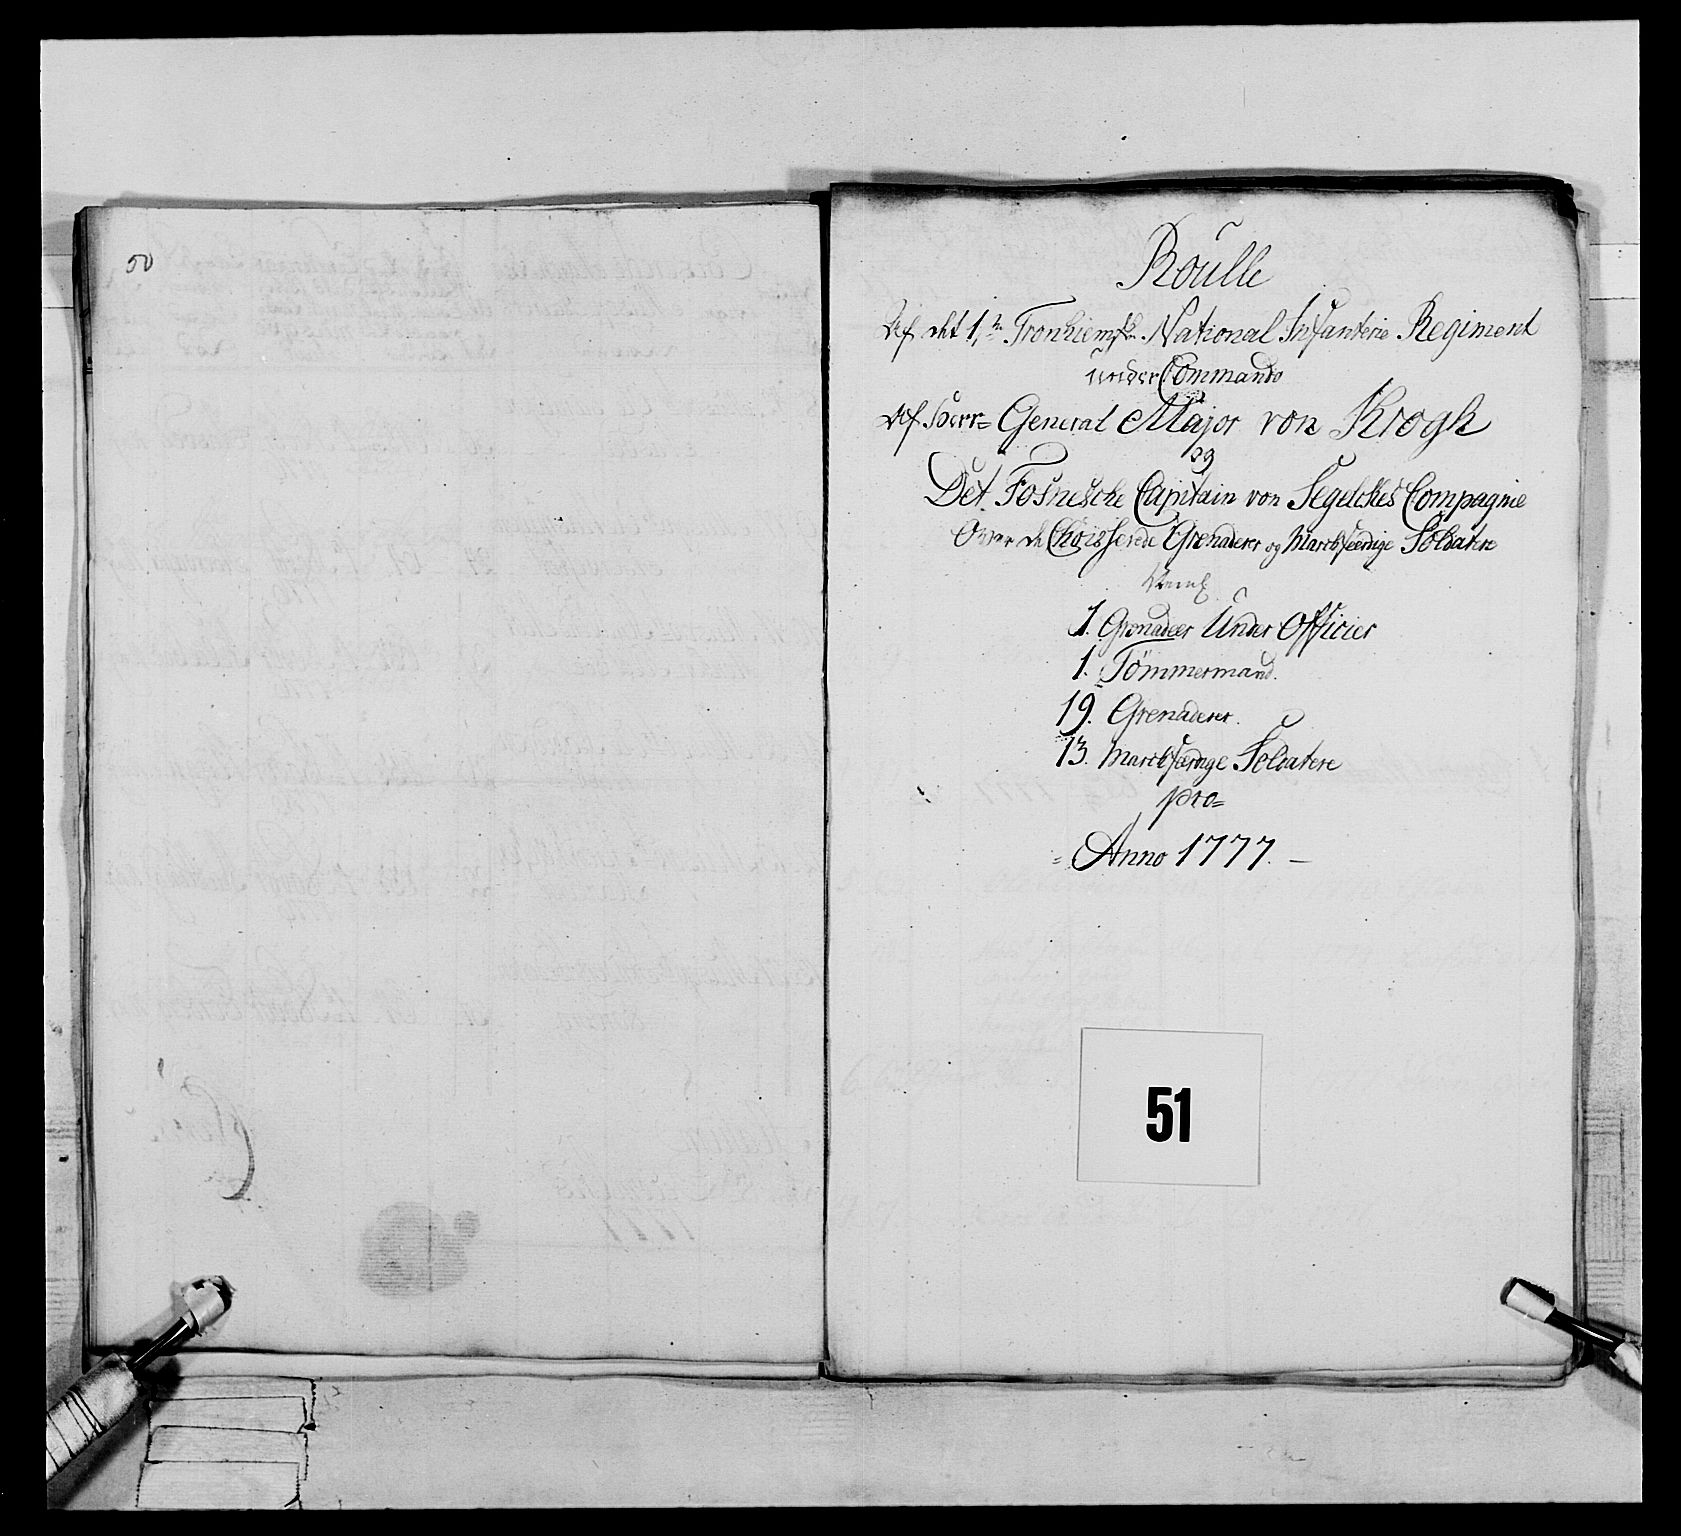 50
Roulle
Af det 1.te Tronhiemske National Infanterie Regiment
under Commando
Af Herr= General Major von Krogh
og
Det Fosnesche Capitain von Segelckes Compagnie
Over de Choisserede Grenaderer og Marchfærdige Soldatere
1. Grenadeer Under Officier
1. Tömmermand.
19. Grenaderer.
13. Marchfærdige Soldatere
pro=
= Anno 1777. —
51